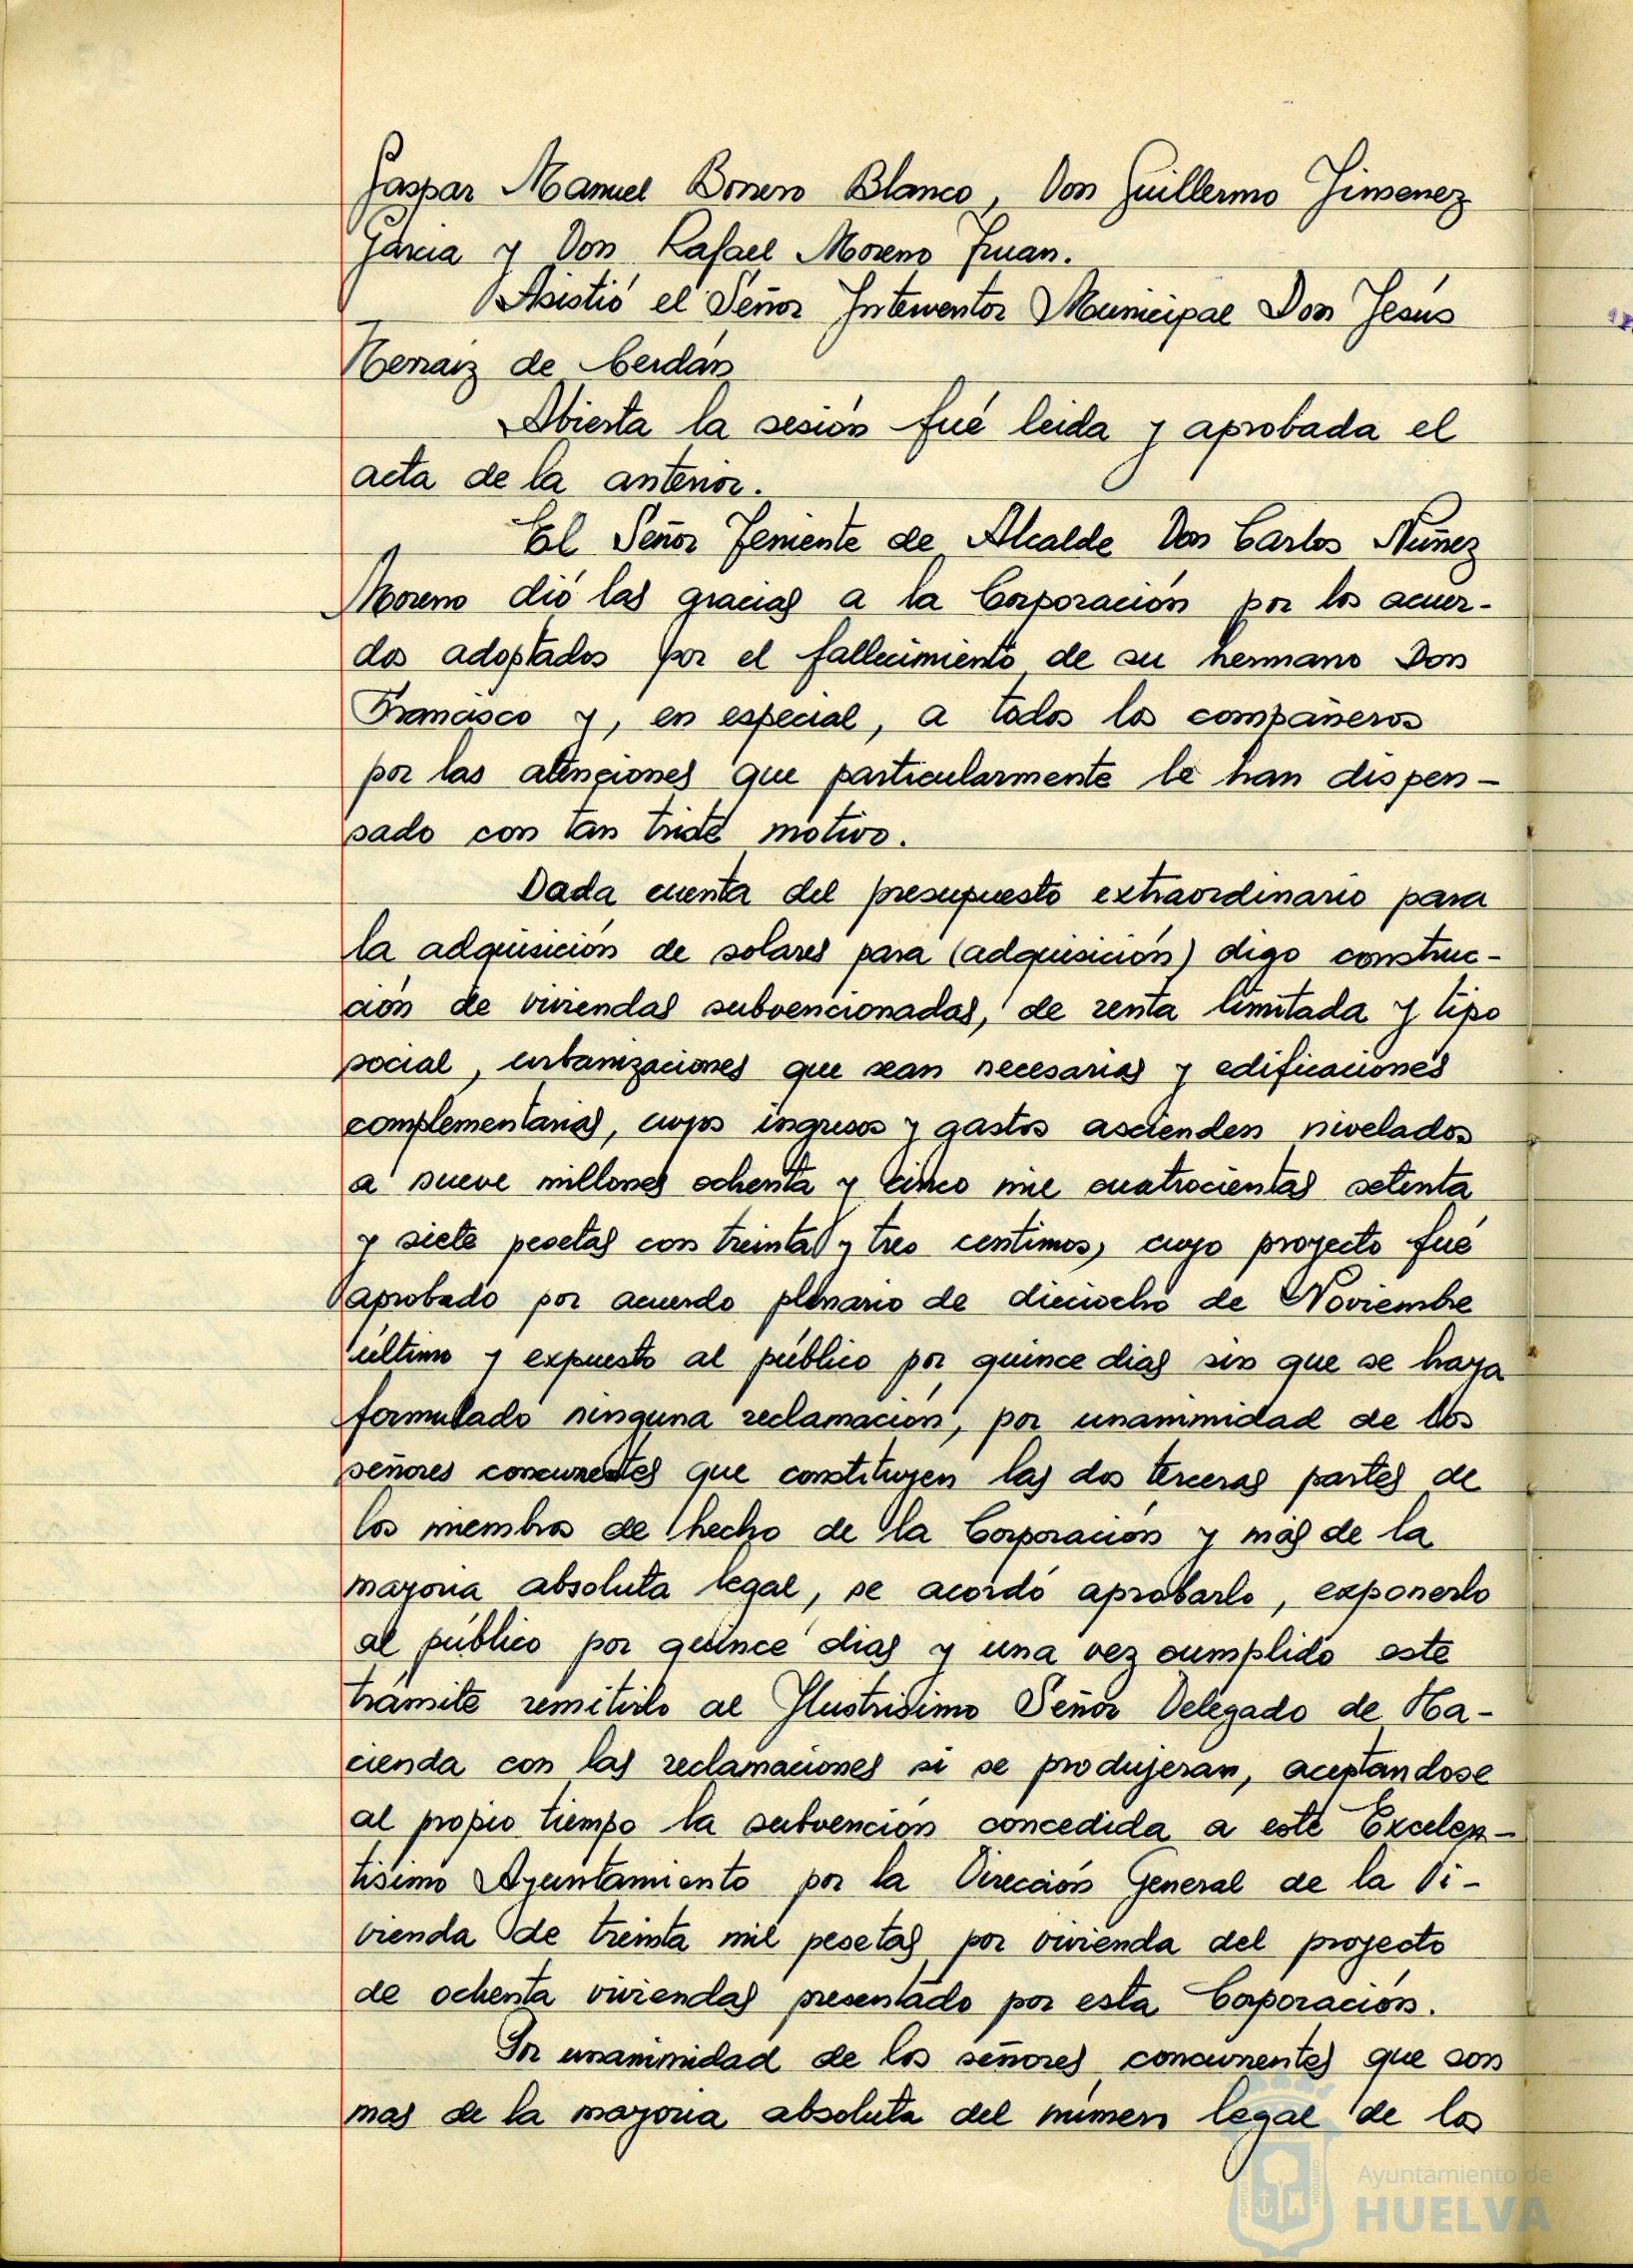 Gaspar Manuel Bonero Blanco, Don Guillermo Jimenez
Garcia y Don Rafael Moreno Juan.
Asistió el Señor Interventor Municipal Don Jesús
Herraiz de Cerdán
Abierta la sesión fué leida y aprobada el
acta de la anterior.
El Señor Teniente de Alcalde Don Carlos Núñez
Moreno dió las gracias a la Corporación por los acuer-
dos adoptados por el fallecimiento de su hermano Don
Francisco y, en especial, a todos los compañeros
por las atenciones que particularmente le han dispen-
sado con tan triste motivo.
Dada cuenta del presupuesto extraordinario para
la adquisición de solares para (adquisición) digo construc-
ción de viviendas subvencionadas, de renta limitada y tipo
social, urbanizaciones que sean necesarias y edificaciones
complementarias, cuyos ingresos y gastos ascienden nivelados
a nueve millones ochenta y cinco mil cuatrocientas setenta
y siete pesetas con treinta y tres centimos, cuyo proyecto fué
aprobado por acuerdo plenario de dieciocho de Noviembre
último y expuesto al público por quince dias sin que se haya
formulado ninguna reclamación, por unanimidad de los
señores concurrentes que constituyen las dos terceras partes de
los miembros de hecho de la Corporación y más de la
mayoria absoluta legal, se acordó aprobarlo, exponerlo
al público por quince dias y una vez cumplido este
trámite remitirlo al Ilustrisimo Señor Delegado de Ha-
cienda con las reclamaciones si se produjeran, aceptandose
al propio tiempo la subvención concedida a este Excelen-
tisimo Ayuntamiento por la Dirección General de la Vi-
vienda de treinta mil pesetas por vivienda del proyecto
de ochenta viviendas presentado por esta Corporación.
Por unanimidad de los señores concurrentes que son
mas de la mayoria absoluta del número legal de los
Ayuntamiento de
HUELVA